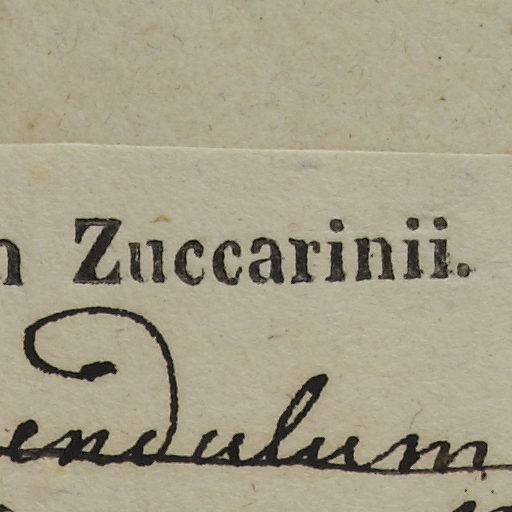 n Zuccarinii.
endulum